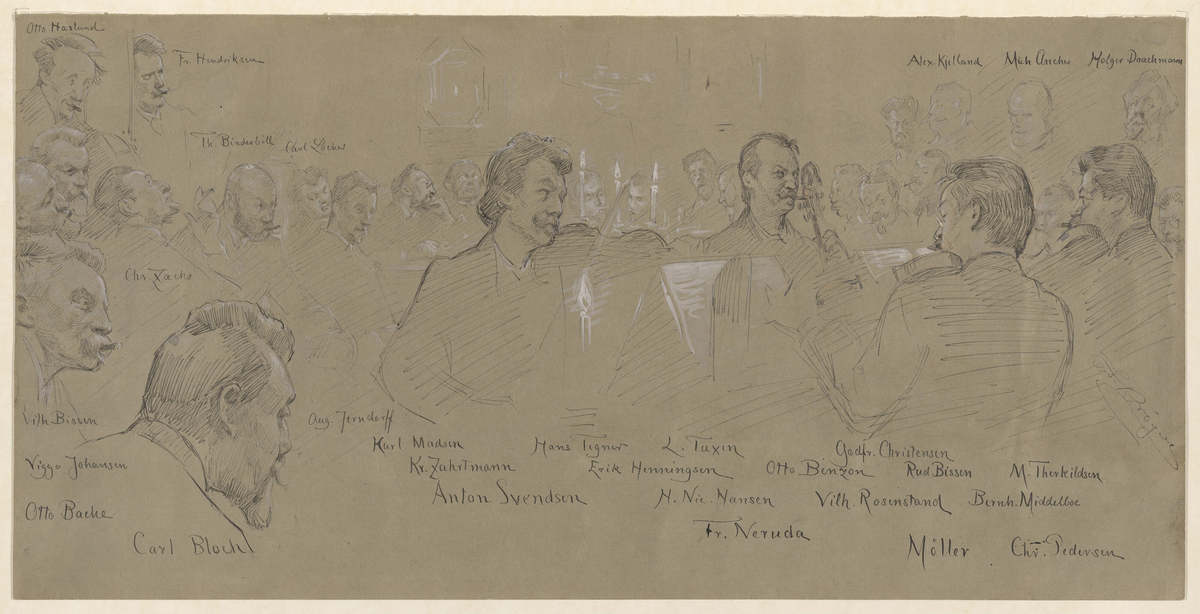 Otto Haslund
Fr. Hendriksen
Alex Kjelland
Mich Ancher
Holger Drachmann
Th. Bindesbøll
Carl Locher
Chr Zachs
Vilh. Bissen
Aug. Jerndorff
Karl Madsen
Hans Tegner
L. Tuxen
Godfr. Christensen
Viggo Johansen
Kr. Zahrtmann
Erik Henningsen
Otto Benzon
Rud Bissen
M. Therkildsen
Anton Svendsen
H. Nic. Hansen
Vilh. Rosenstand
Bernh. Middelboe
Otto Bache
Carl Bloch
Fr. Neruda
Möller
Chr. Pedersen